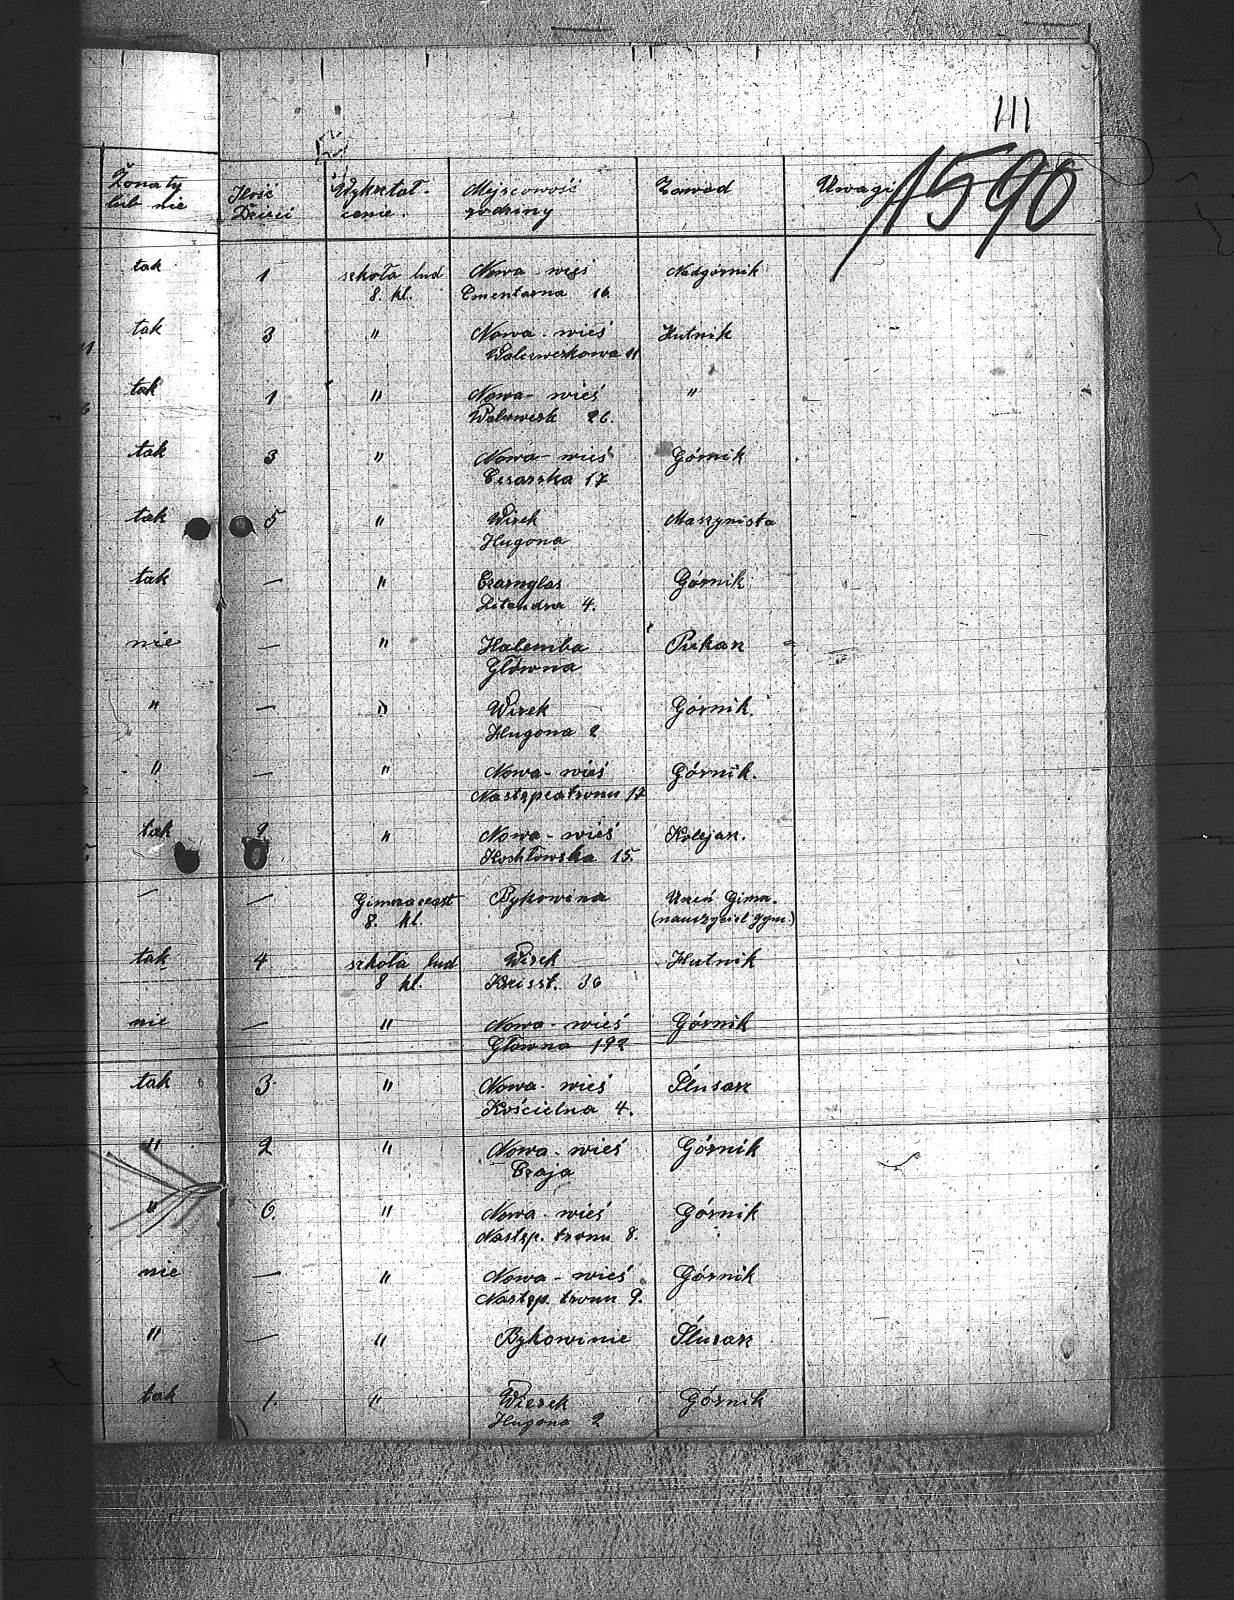 111
1590
Żonaty lub nie | Ilość Dzieci | Wykształcenie. | Miejscowość rodziny | Zawód | Uwagi
tak | 1 | szkoła lud | Nowa-wieś | Nadgórnik
8. kl. | Cmentarna 16.
tak | 3 | " | Nowa-wieś | Hutnik
11
tak | 1 | " | Nowa-wieś | "
26.
tak | 3 | " | Nowa-wieś | Górnik
Cesarska 17
tak | 5 | " | Wirek | Maszynista
Hugona
tak | — | " | Czarnylas | Górnik
Litandra 4.
nie | — | " | Halemba | Piekarz
Główna
" | — | " | Wirek | Górnik.
Hugona 2
" | — | " | Nowa-wieś | Górnik.
Następcatronu 17
tak | 2 | " | Nowa-wieś | Kolejarz.
Kochłowska 15.
— | — | | Bykowina | Uczeń Gimn.
8. kl. | (nauczyciel gym.)
tak | 4 | szkoła lud | Wirek | Hutnik
8 kl. | 36
nie | — | " | Nowa-wieś | Górnik
Główna 192
tak | 3 | " | Nowa-wieś | Ślusarz
Kościelna 4.
" | 2 | " | Nowa-wieś | Górnik
Czaja
" | 6. | " | Nowa-wieś | Górnik
Następ. tronu 8.
nie | — | " | Nowa-wieś | Górnik
Następ. tronu 9.
" | — | " | Bykowinie | Ślusarz
tak | 1. | " | Wierek | Górnik
Hugona 2